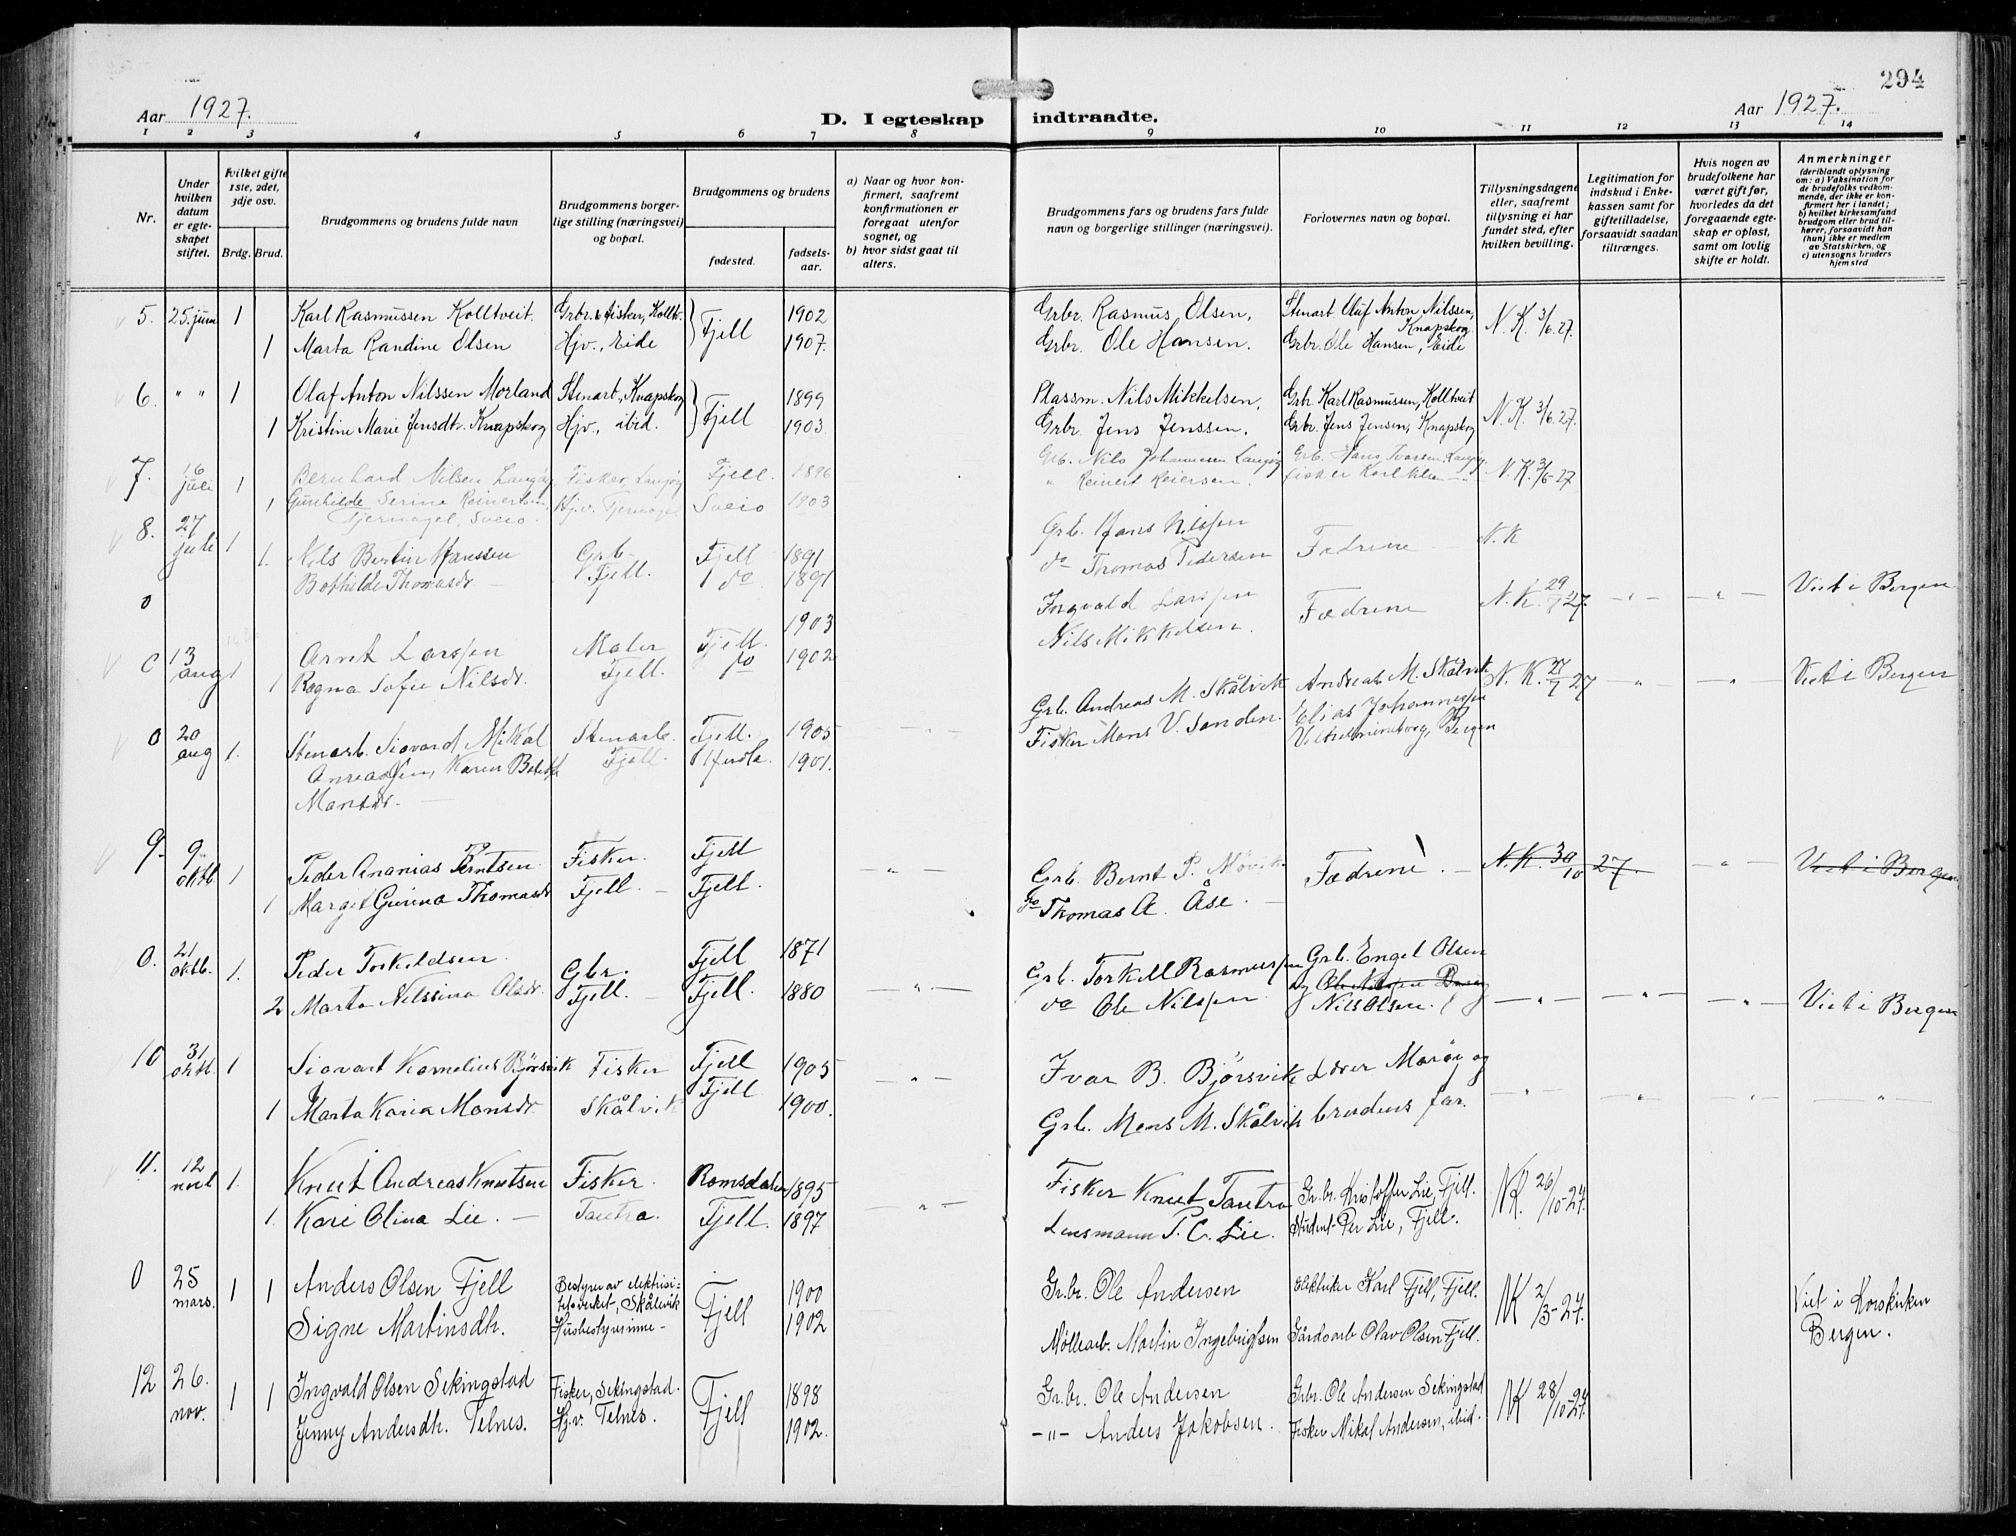 294
Aar 1927.
D. I egteskap indtraadte.
Aar 1927.
1 2 3 4 5 6 7 8 9 10 11 12 13 14
Nr.
Under hvilken datum er egteskapet stiftet.
Hvilket gifte 1ste, 2det, 3dje osv.
Brdg. Brud.
Brudgommens og brudens fulde navn
Brudgommens borgerlige stilling (næringsvei) og bopæl.
Brudgommens og brudens
fødested.
fødselsaar.
a) Naar og hvor konfirmert, saafremt konfirmationen er foregaat utenfor sognet, og
b) hvor sidst gaat til alters.
Brudgommens fars og brudens fars fulde navn og borgerlige stillinger (næringsvei).
Forlovernes navn og bopæl.
Tillysningsdagene eller, saafremt tillysning ei har fundet sted, efter hvilken bevilling.
Legitimation for indskud i Enkekassen samt for giftetilladelse, forsaavidt saadan tiltrænges.
Hvis nogen av brudefolkene har været gift før, hvorledes da det foregaaende egteskap er opløst, samt om lovlig skifte er holdt.
Anmerkninger (deriblandt oplysning om: a) Vaksination for de brudefolks vedkommende, der ikke er konfirmert her i landet; b) hvilket kirkesamfund brudgom eller brud tilhører, forsaavidt han (hun) ikke er medlem av Statskirken, og c) utensogns bruders hjemsted
5. 25. juni 1 Karl Rasmussen Kolltveit. Grbr. & fisker, Kolltv. Fjell 1902 Grbr. Rasmus Olsen, Stenarb. Olaf Anton Nilssen, Knapskog N.K. 3/6.27.
1 Marta Randine Olsen Hjv., Eide 1907. Grbr. Ole Hansen. Grbr. Ole Hansen, Eide
6. " " 1 Olaf Anton Nilssen Morland Stenarb., Knapskog Fjell 1899 Plassm. Nils Mikkelsen, Grbr. Karl Rasmussen, Kolltveit N.K. 3/6.27.
1 Kristine Marie Jensdtr. Knapskog Hjv., ibid. 1903. Grbr. Jens Jenssen. Grbr. Jens Jensen, Knapskog
7. 16 juli 1 Bernhard Nilsen Langøy Fisker, Langøy Fjell. 1896 Grb. Nils Johannesen Langøy Grb. Hans N.K. 3/6-27
1 Gunhilde Serine Reinertsen Tjernagel, Sveio. Hj.v. Tjernagel Sveio 1903 " Reinert Reiersen. fisker Karl
8. 27 juli 1 Nils Bertin Hanssen Grb. Fjell 1891 Grb. Hans Nilssen Fædrene N.K
1. Bothilde Thomasdr Fjell. do 1891 do Thomas Pedersen
0 13 aug 1 Arnt Larssen Maler Fjell. 1903 Ingvald Larssen Fædrene N.K. 29/7 27. Viet i Bergen
1 Ragna Sofie Nilsdr. Fjell. do 1902 Nils Mikkelsen.
0 20 aug 1. Stenarb. Sigvard Mikal Stenarb. Fjell. 1905 Grb. Andreas M. Skålvik Andreas M. Skålvik N.K. 27/7 27 Viet i Bergen
Andreassen, Karen Fjell. Herdla 1901. Fisker Mons V. Sanden. Elias Johannessen
Monsdr. Bergen
9. 9 oktb. 1 Peder Ananias Berntsen. Fisker. Fjell Grb. Bernt P. Møvik Fædrene. N.K. 30/10 27. Viet i Bergen
1 Marget Gurina Thomasdr Fjell. Fjell. do Thomas A. Åse.
0. 21 oktb. 1. Peder Torkildsen. Gbr. Fjell 1871 Grb. Torkell Rasmussen Grb. Engel Olsen
2 Marta Nilssina Olsdr. Fjell. Fjell. 1880 do Ole Nilssen og Nils Olsen. Viet i Bergen
10 31 oktb. 1 Sigvart Kornelius Bjørsvik Fisker Fjell 1905 Ivar B. Bjørsvik Lærer Marøy og
1 Marta Karia Monsdr. Skålvik Fjell. 1900. Grb. Mons M. Skålvik brudens far.
11. 12 novb 1. Knut Andreas Knutsen Fisker. Romsdalen 1895 Fisker Knut Tautra Gr.br. Kristoffer Lie, Fjell. NK. 26/10-27.
1. Kari Olina Lie. Tautra. Fjell. 1897 Lensmann P. C. Lie. Student Per Lie, Fjell.
0 25 mars. 1 1 Anders Olsen Fjell Bestyrer av elektrisitetsverket, Skålevik Fjell 1900 Gr.br. Ole Andersen Elektriker Karl Fjell, Fjell. NK 2/3-27. Viet i Korskirken Bergen.
Signe Martinsdtr. Husbestyrerinne 1902 Møllearb. Martin Ingebrigtsen Gårdsarb Olav Olsen Fjell.
12 26. nov. 1 1 Ingvald Olsen Sekingstad Fisker, Sekingstad. Fjell 1898 Gr.br. Ole Andersen Grbr. Ole Andersen Sekingstad NK 28/10-27.
Jenny Andersdtr. Telnes. Hj.v. Telnes. 1902. -"- Anders Jakobsen. Fisker Mikal Andersen, ibid.